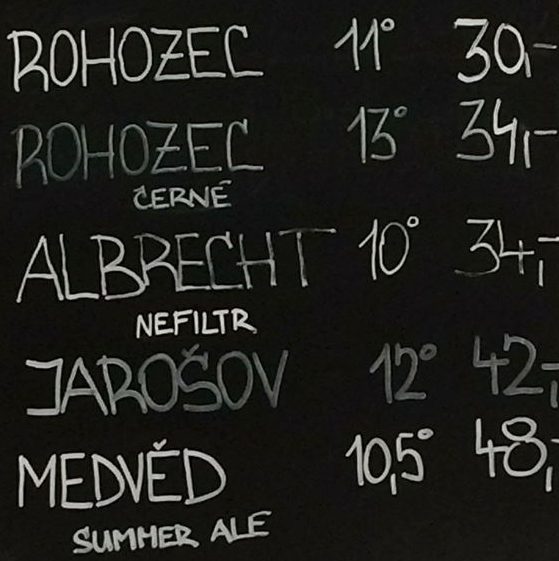 ROHOZEC 11° 30,-
ROHOZEC 13° 34,-
ČERNÉ
ALBRECHT 10° 34,-
NEFILTR.
JAROŠOV 12° 42,-
MEDVĚD 10,5° 48,-
SUMMER ALE